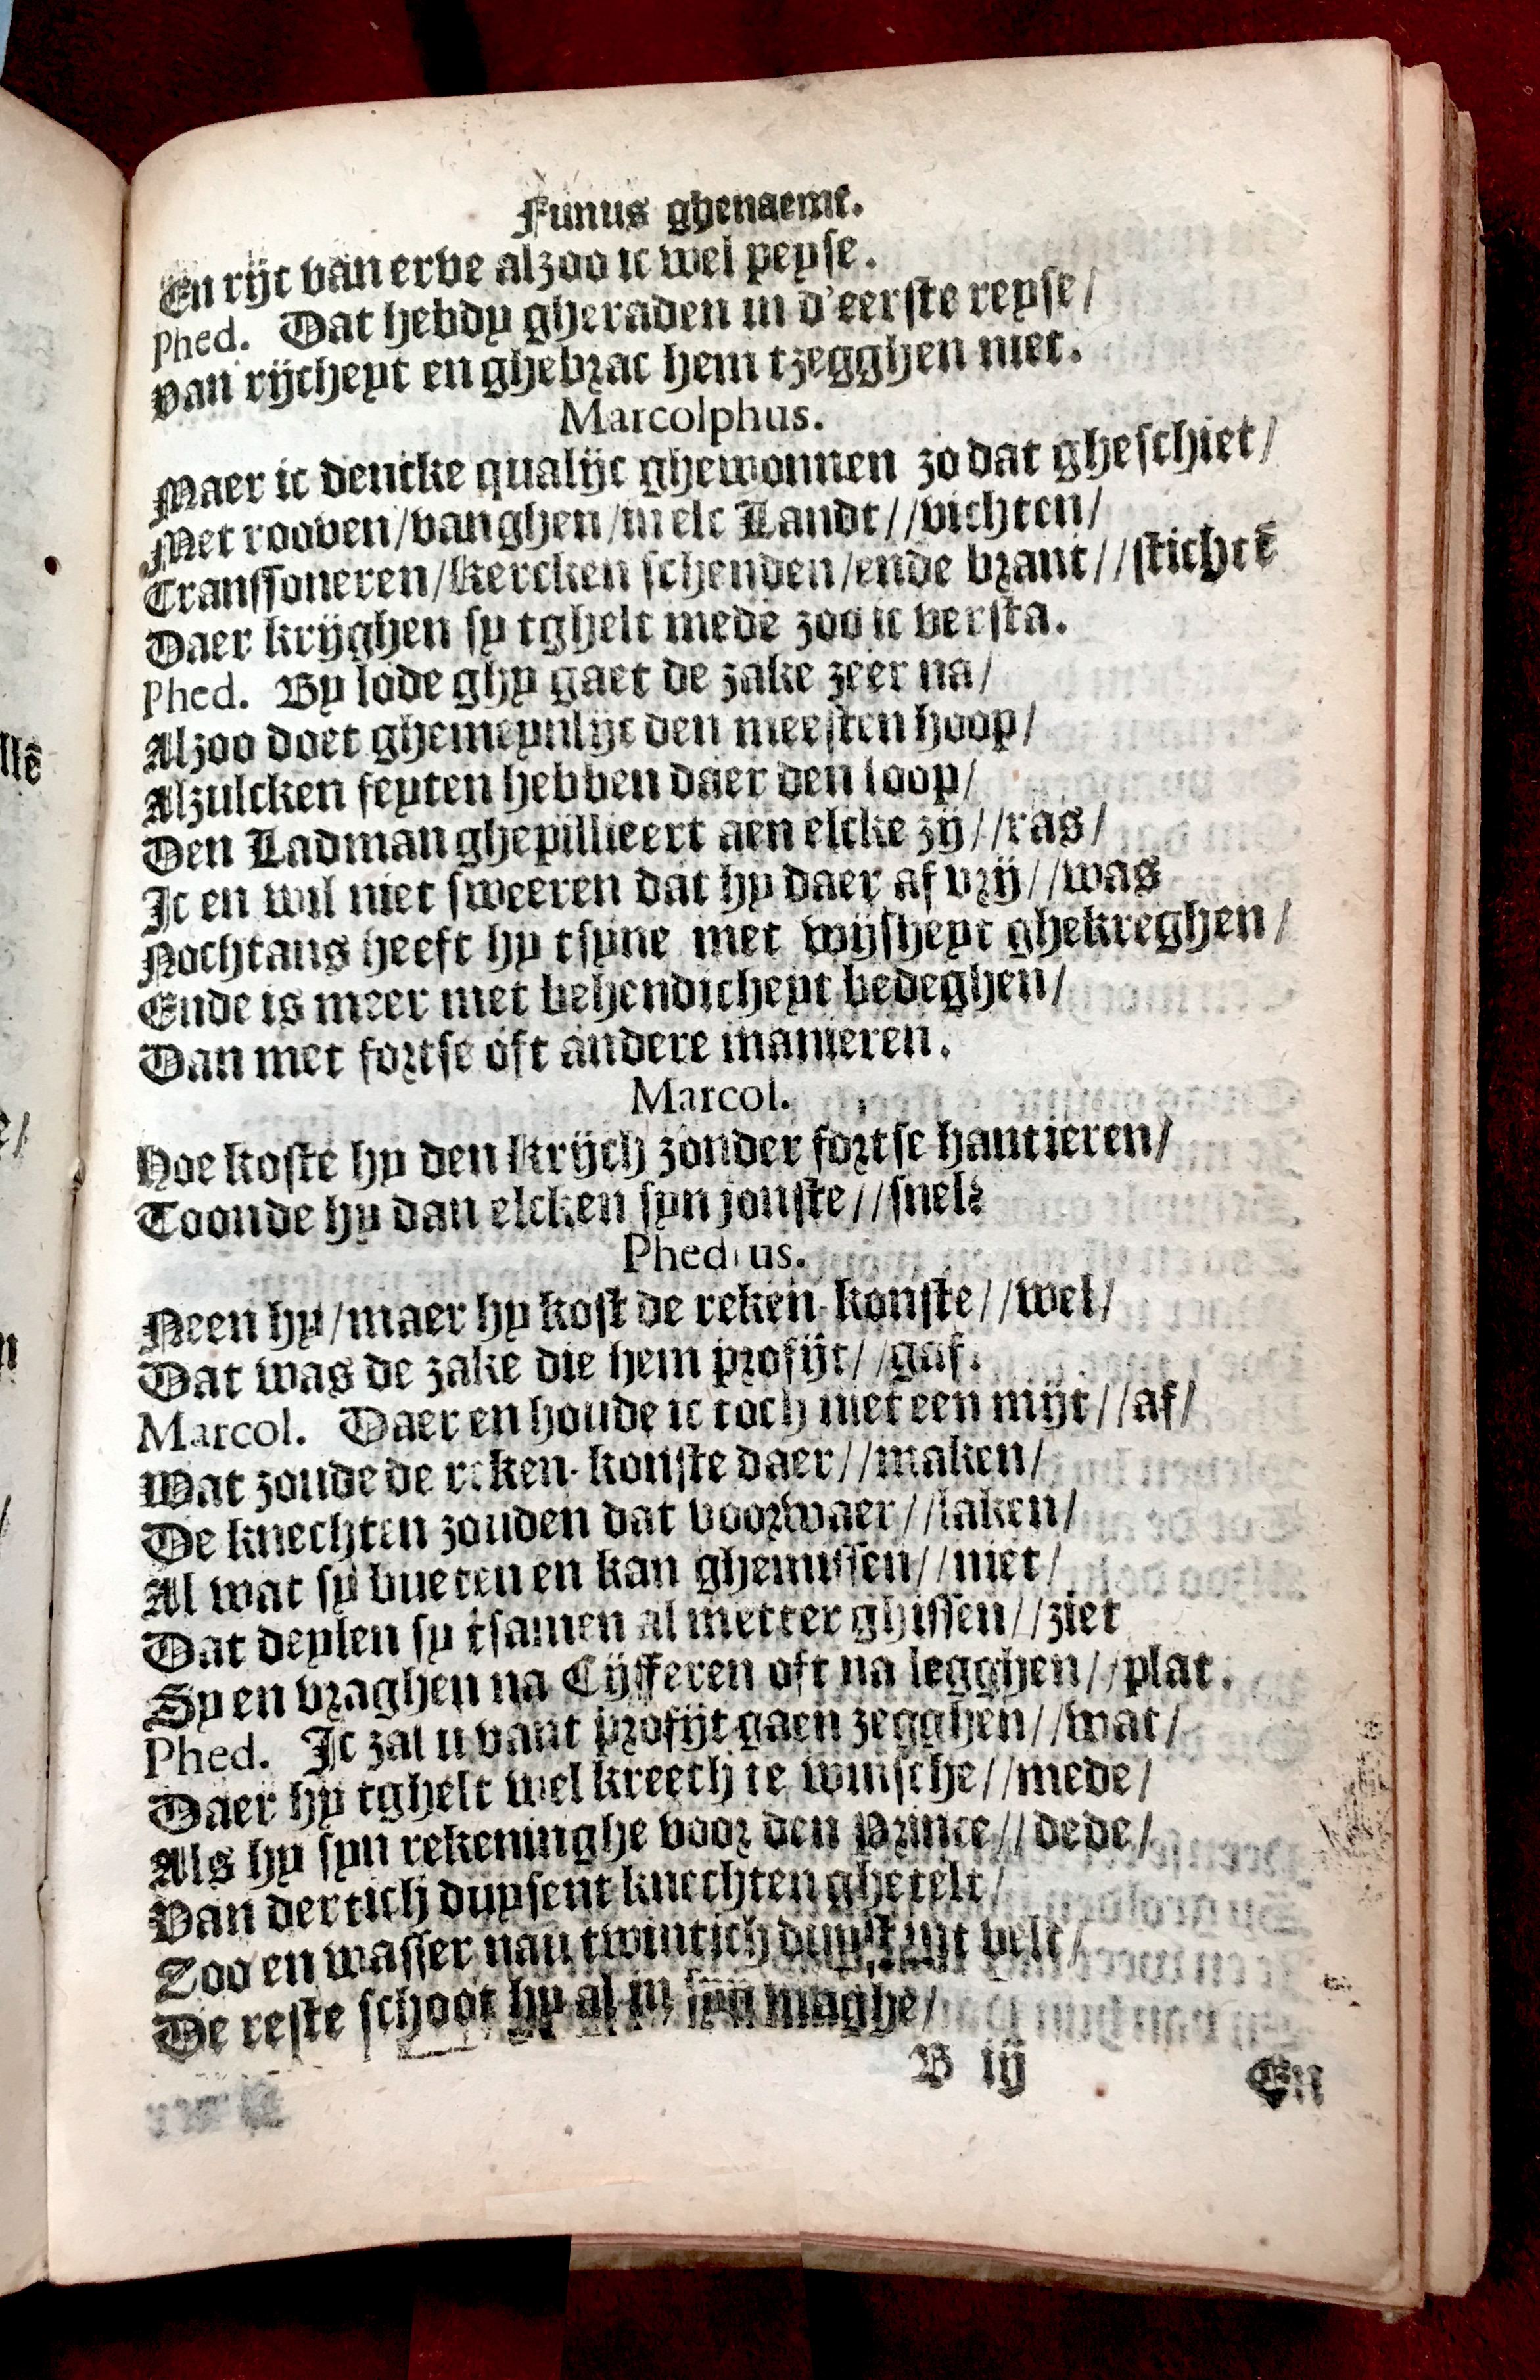 Funus ghenaemt.
En rijc van erve alzoo ic wel peyse.
Phed. Dat hebdy gheraden in d'eerste reyse/
van rijcheyt en ghebrac hem tzegghen niet.
Marcolphus.
Maer ic dencke qualijc ghewonnen zo dat gheschiet/
Met rooven/vanghen/in elc Landt//vichten/
Transsoneren/kercken schenden/ende brant//stichtē
Daer krijghen sy tghelt mede zoo ic versta.
Phed. By lode ghy gaet de zake zeer na/
Alzoo doet ghemeynlijc den meesten hoop/
Alzulcken feyten hebben daer den loop/
Den Ladman ghepillieert aen elcke zij//ras/
Ic en wil niet sweeren dat hy daer af vrij//was
Nochtans heeft hy tsyne met wijsheyt ghekreghen/
Ende is meer met behendicheyt bedeghen/
Dan met fortse oft andere manieren.
Marcol.
Hoe koste hy den krijch zonder fortse hantieren/
Toonde hy dan elcken syn jonste//snel?
Phedrus.
Neen hy/maer hy kost de reken-konste//wel/
Dat was de zake die hem profijt//gaf.
Marcol. Daer en houde ic toch niet een mijt//af/
Wat zoude de reken-konste daer//maken/
De knechten zouden dat voorwaer//laken/
Al wat sy bueten en kan ghemissen//niet/
Dat deylen sy tsamen al metter ghissen//ziet
Sy en vraghen na Cijfferen oft na legghen//plat.
Phed. Ic zal u vant profijt gaen zegghen//wat/
Daer hy tghelt wel kreech te winsche//mede/
Als hy syn rekeninghe voor den Prince//dede/
Van dertich duysent knechten ghetelt/
Zoo en wasser nau twintich duyst int velt/
De reste schoot hy al in syn maghe/
B ij
En